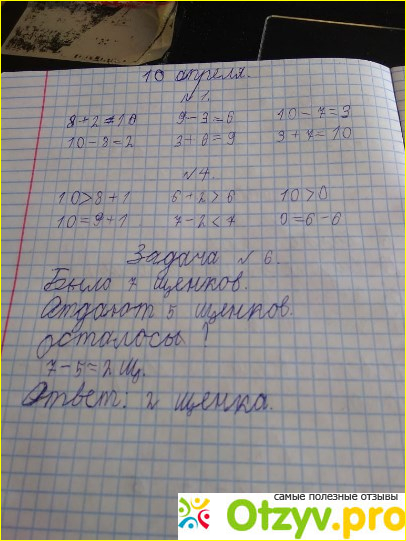 10 апреля.
№ 1.
8+2=10 9-3=6 10-7=3
10-8=2 3+6=9 3+7=10
№ 4.
10>8+1 6+2>6 10>0
10=9+1 7-2<7 0=6-6
Задача № 6.
Было 7 щенков.
Отдают 5 щенков.
Осталось ?
7-5=2 щ.
Ответ: 2 щенка.
самые полезные отзывы
Otzyv.pro